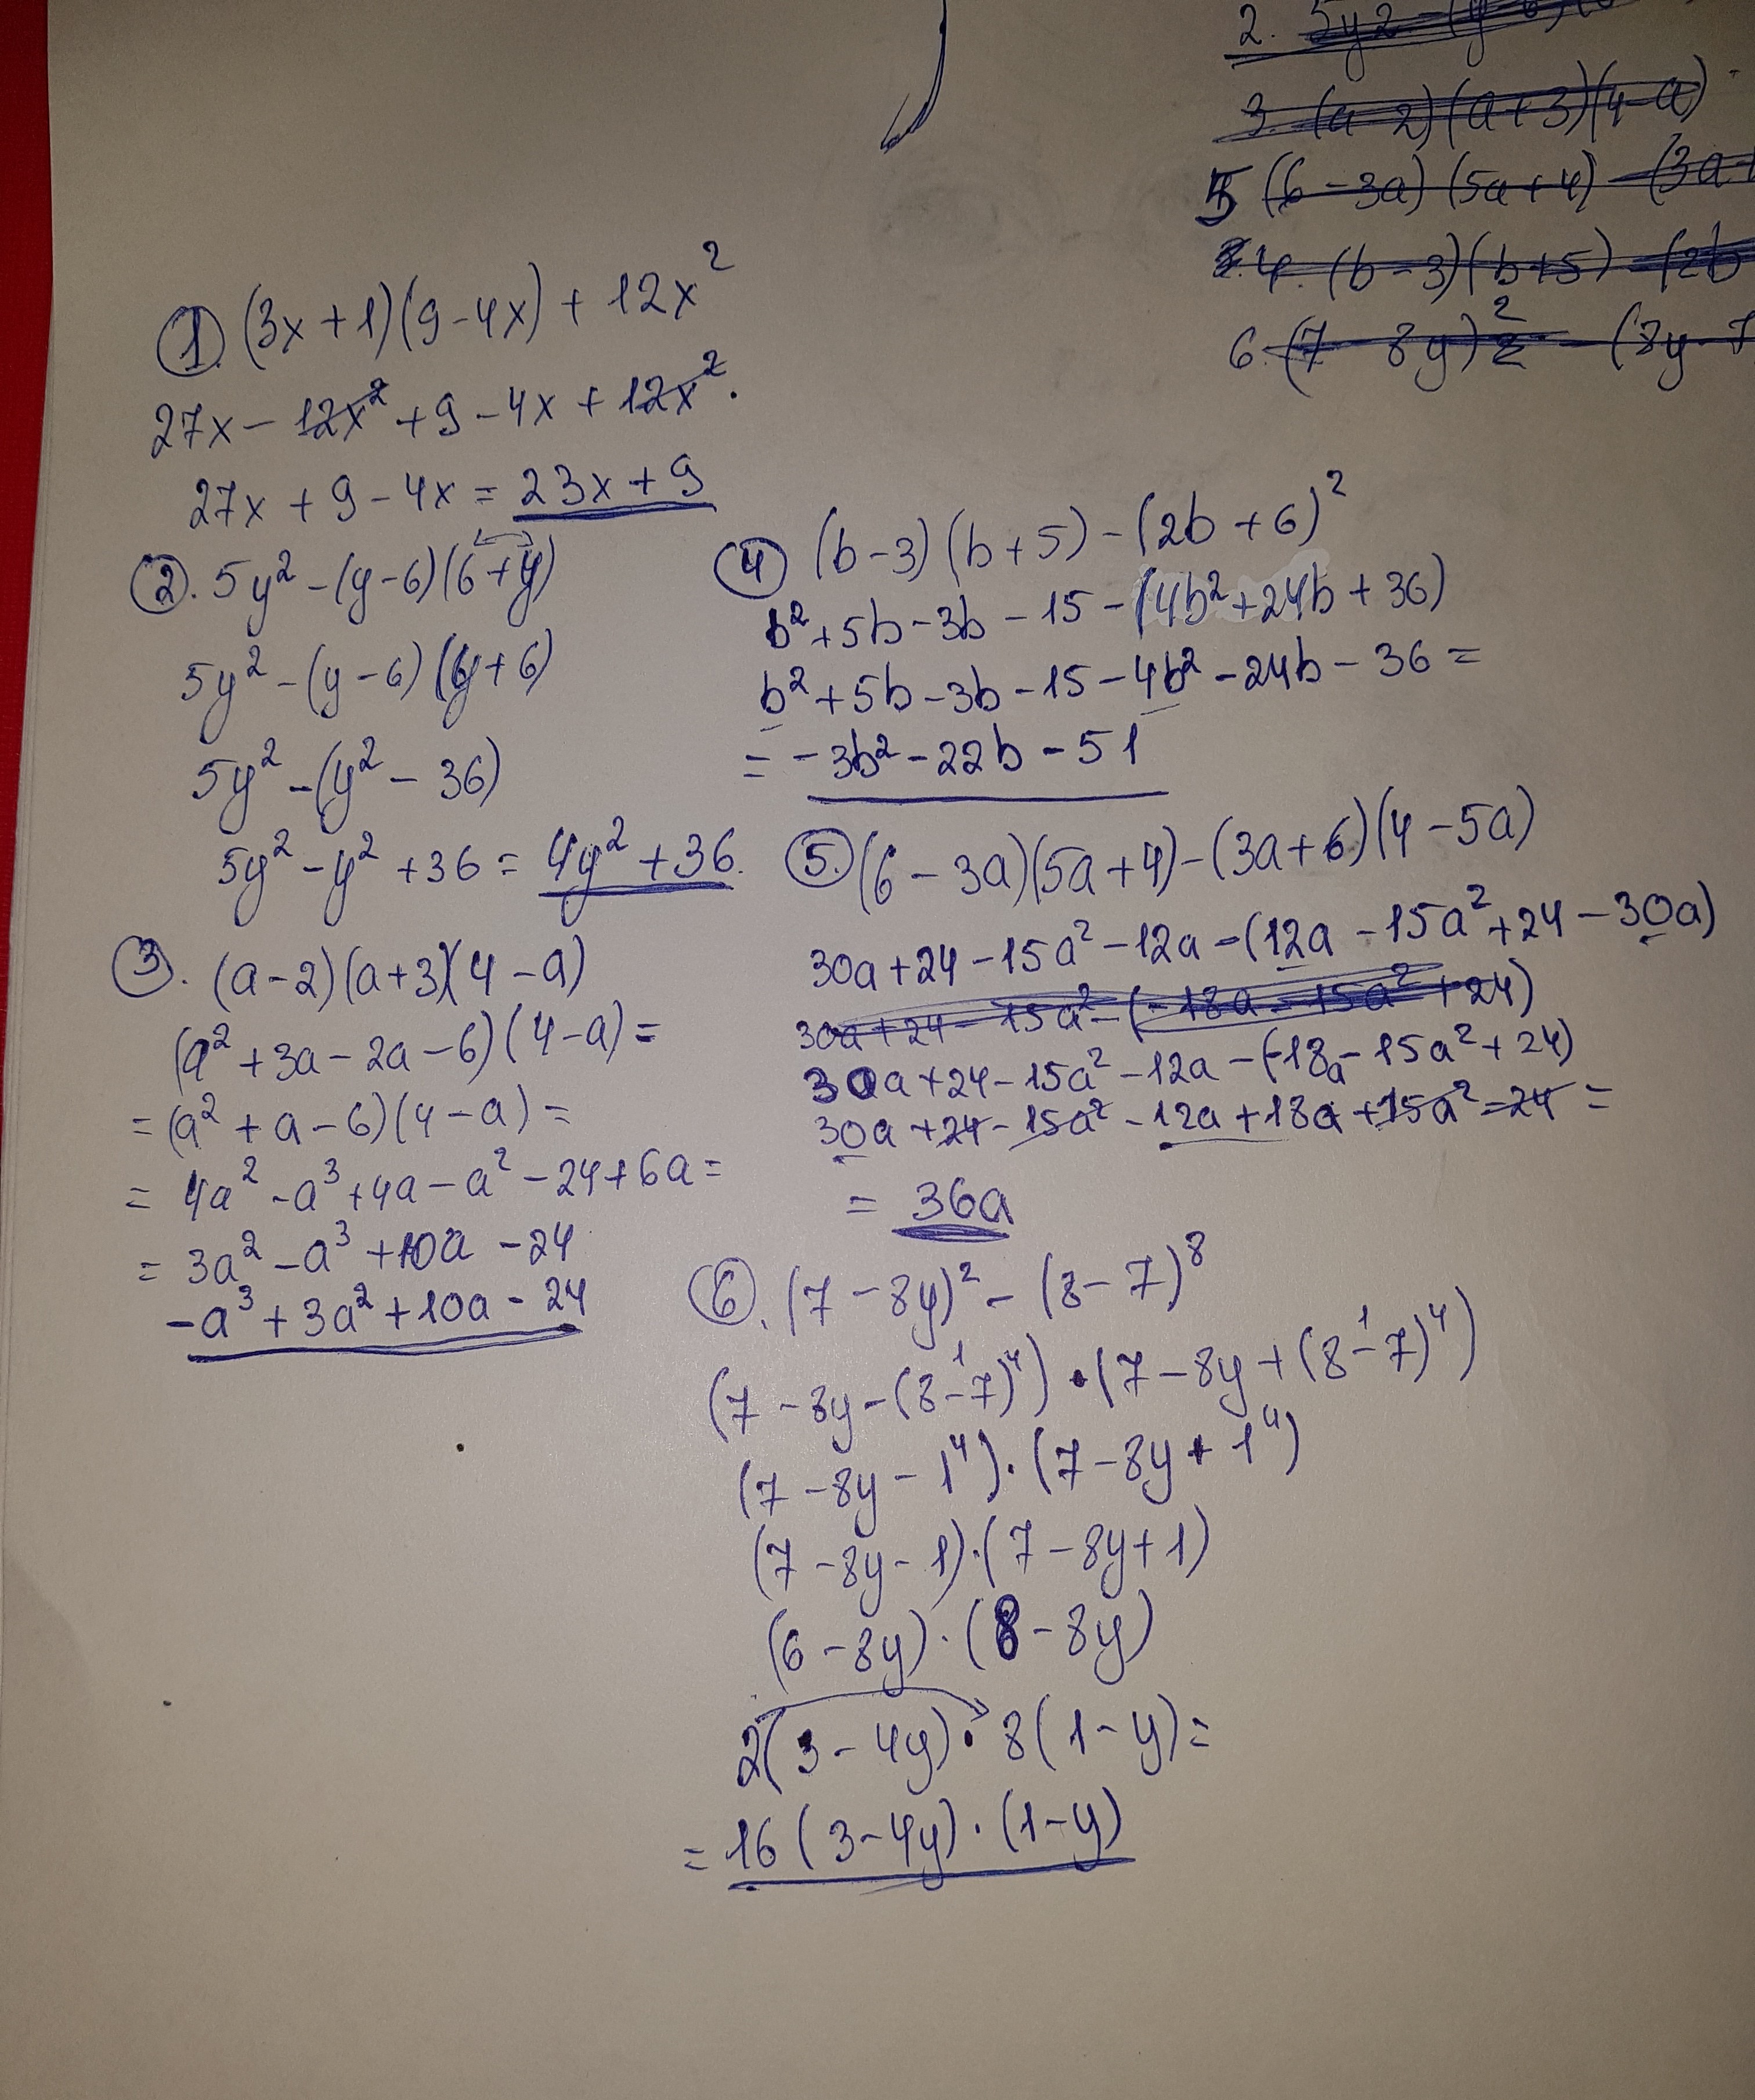 2. 5y2 - (y-6)(6
3. (a-2)(a+3)(4-a)
5 (6-3a)(5a+4) - (3a+
4. (b-3)(b+5) - (2b
6. (7-8y)² - (8y-7
1. (3x+1)(9-4x) + 12x²
27x - 12x² + 9 - 4x + 12x².
27x + 9 - 4x = 23x + 9
2. 5y² - (y-6)(6+y)
5y² - (y-6)(y+6)
5y² - (y² - 36)
5y² - y² + 36 = 4y² + 36.
3. (a-2)(a+3)(4-a)
(a² + 3a - 2a - 6)(4-a) =
= (a² + a - 6)(4-a) =
= 4a² - a³ + 4a - a² - 24 + 6a =
= 3a² - a³ + 10a - 24
-a³ + 3a² + 10a - 24
4 (b-3)(b+5) - (2b+6)²
b² + 5b - 3b - 15 - (4b² + 24b + 36)
b² + 5b - 3b - 15 - 4b² - 24b - 36 =
= -3b² - 22b - 51
5. (6-3a)(5a+4) - (3a+6)(4-5a)
30a + 24 - 15a² - 12a - (12a - 15a² + 24 - 30a)
30a + 24 - 15a² - (-18a - 15a² + 24)
30a + 24 - 15a² - 12a - (-18a - 15a² + 24)
30a + 24 - 15a² - 12a + 18a + 15a² - 24 =
= 36a
6. (7-8y)² - (8-7)⁸
(7-8y-(8-7)⁴)·(7-8y+(8-7)⁴)
(7-8y-1⁴)·(7-8y+1⁴)
(7-8y-1)·(7-8y+1)
(6-8y)·(8-8y)
2(3-4y)·8(1-y) =
= 16(3-4y)·(1-y)